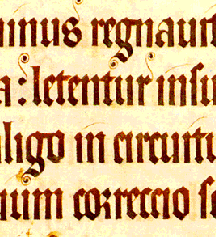 minus regnaui
a : letentur insu
aligo in circuitu
ium correccio se